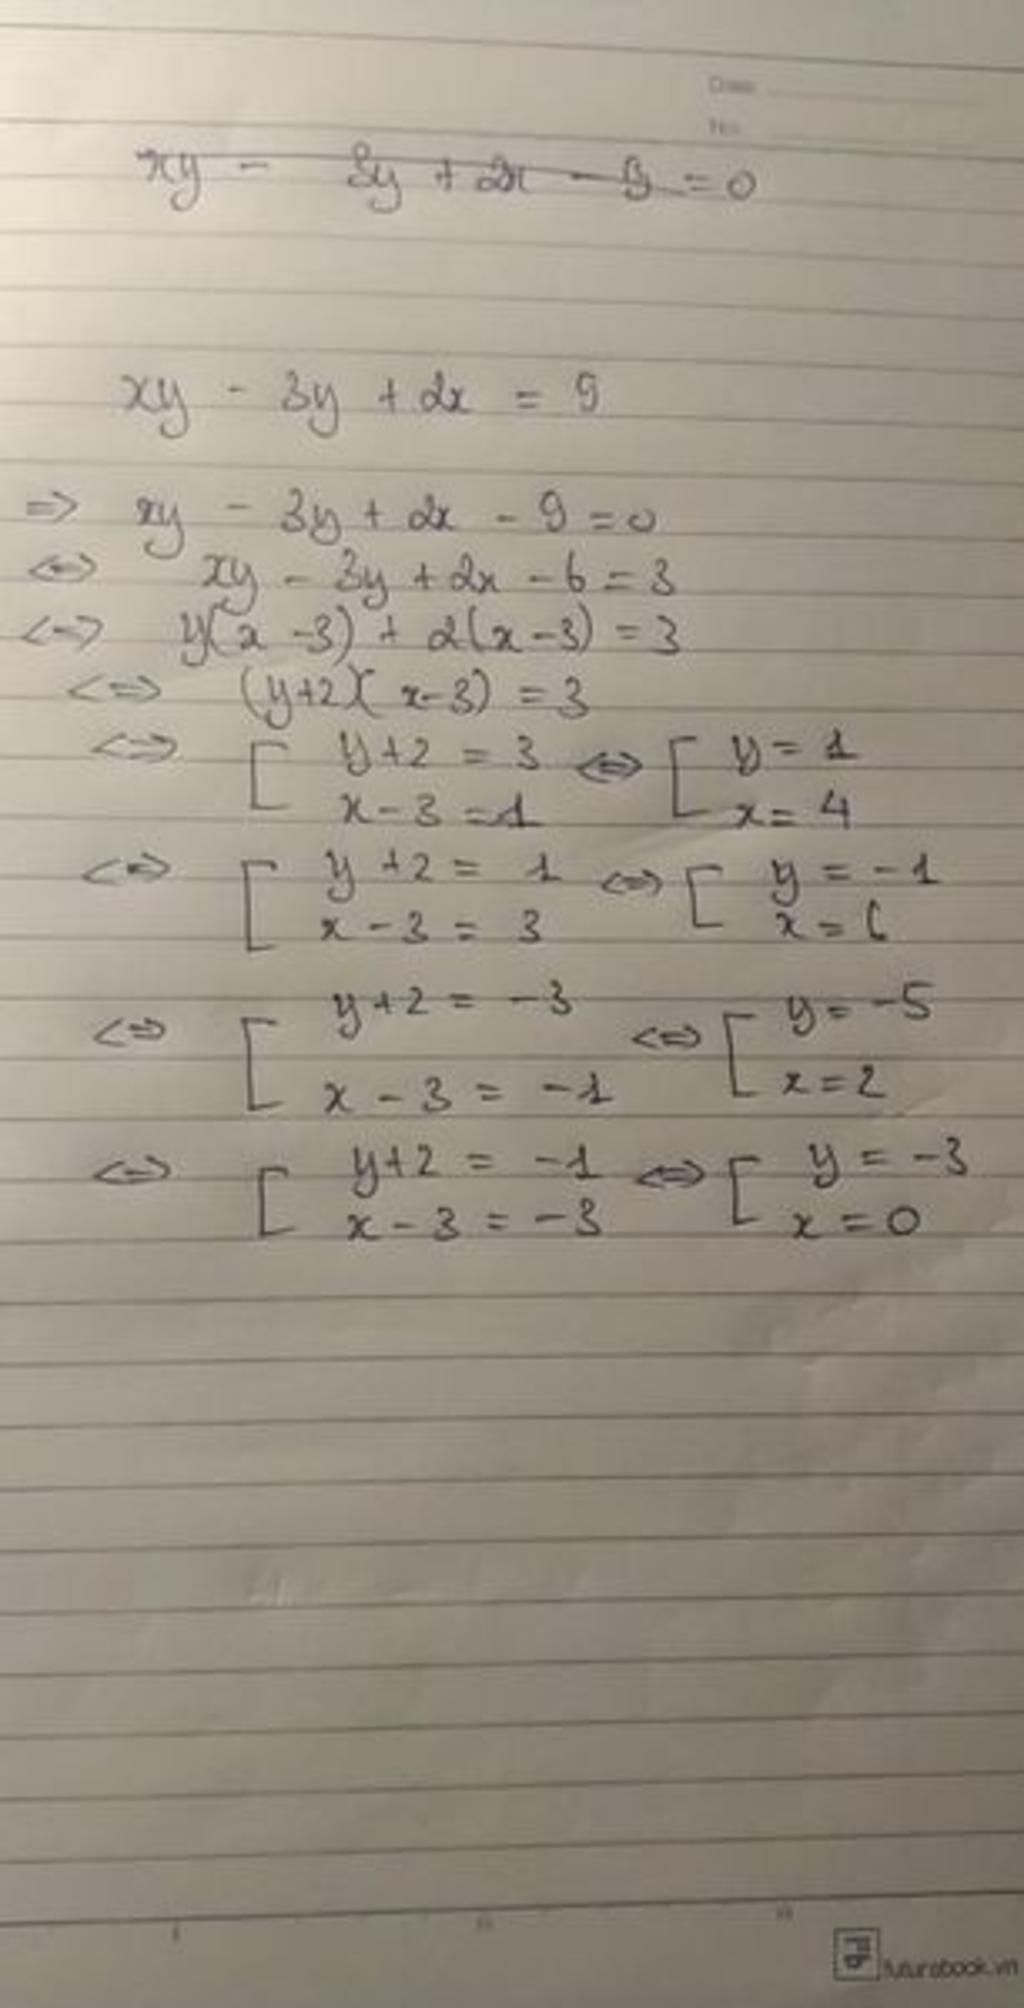 Date
No.
xy - 3y + 2x - 9 = 0
xy - 3y + 2x = 9
=> xy - 3y + 2x - 9 = 0
<=> xy - 3y + 2x - 6 = 3
<=> y(x - 3) + 2(x - 3) = 3
<=> (y+2)(x-3) = 3
<=> [ y+2 = 3 <=> [ y = 1
x - 3 = 1 x = 4
<=> [ y + 2 = 1 <=> [ y = -1
x - 3 = 3 x = 6
<=> [ y + 2 = -3 <=> [ y = -5
x - 3 = -1 x = 2
<=> [ y+2 = -1 <=> [ y = -3
x - 3 = -3 x = 0
futurebook.vn